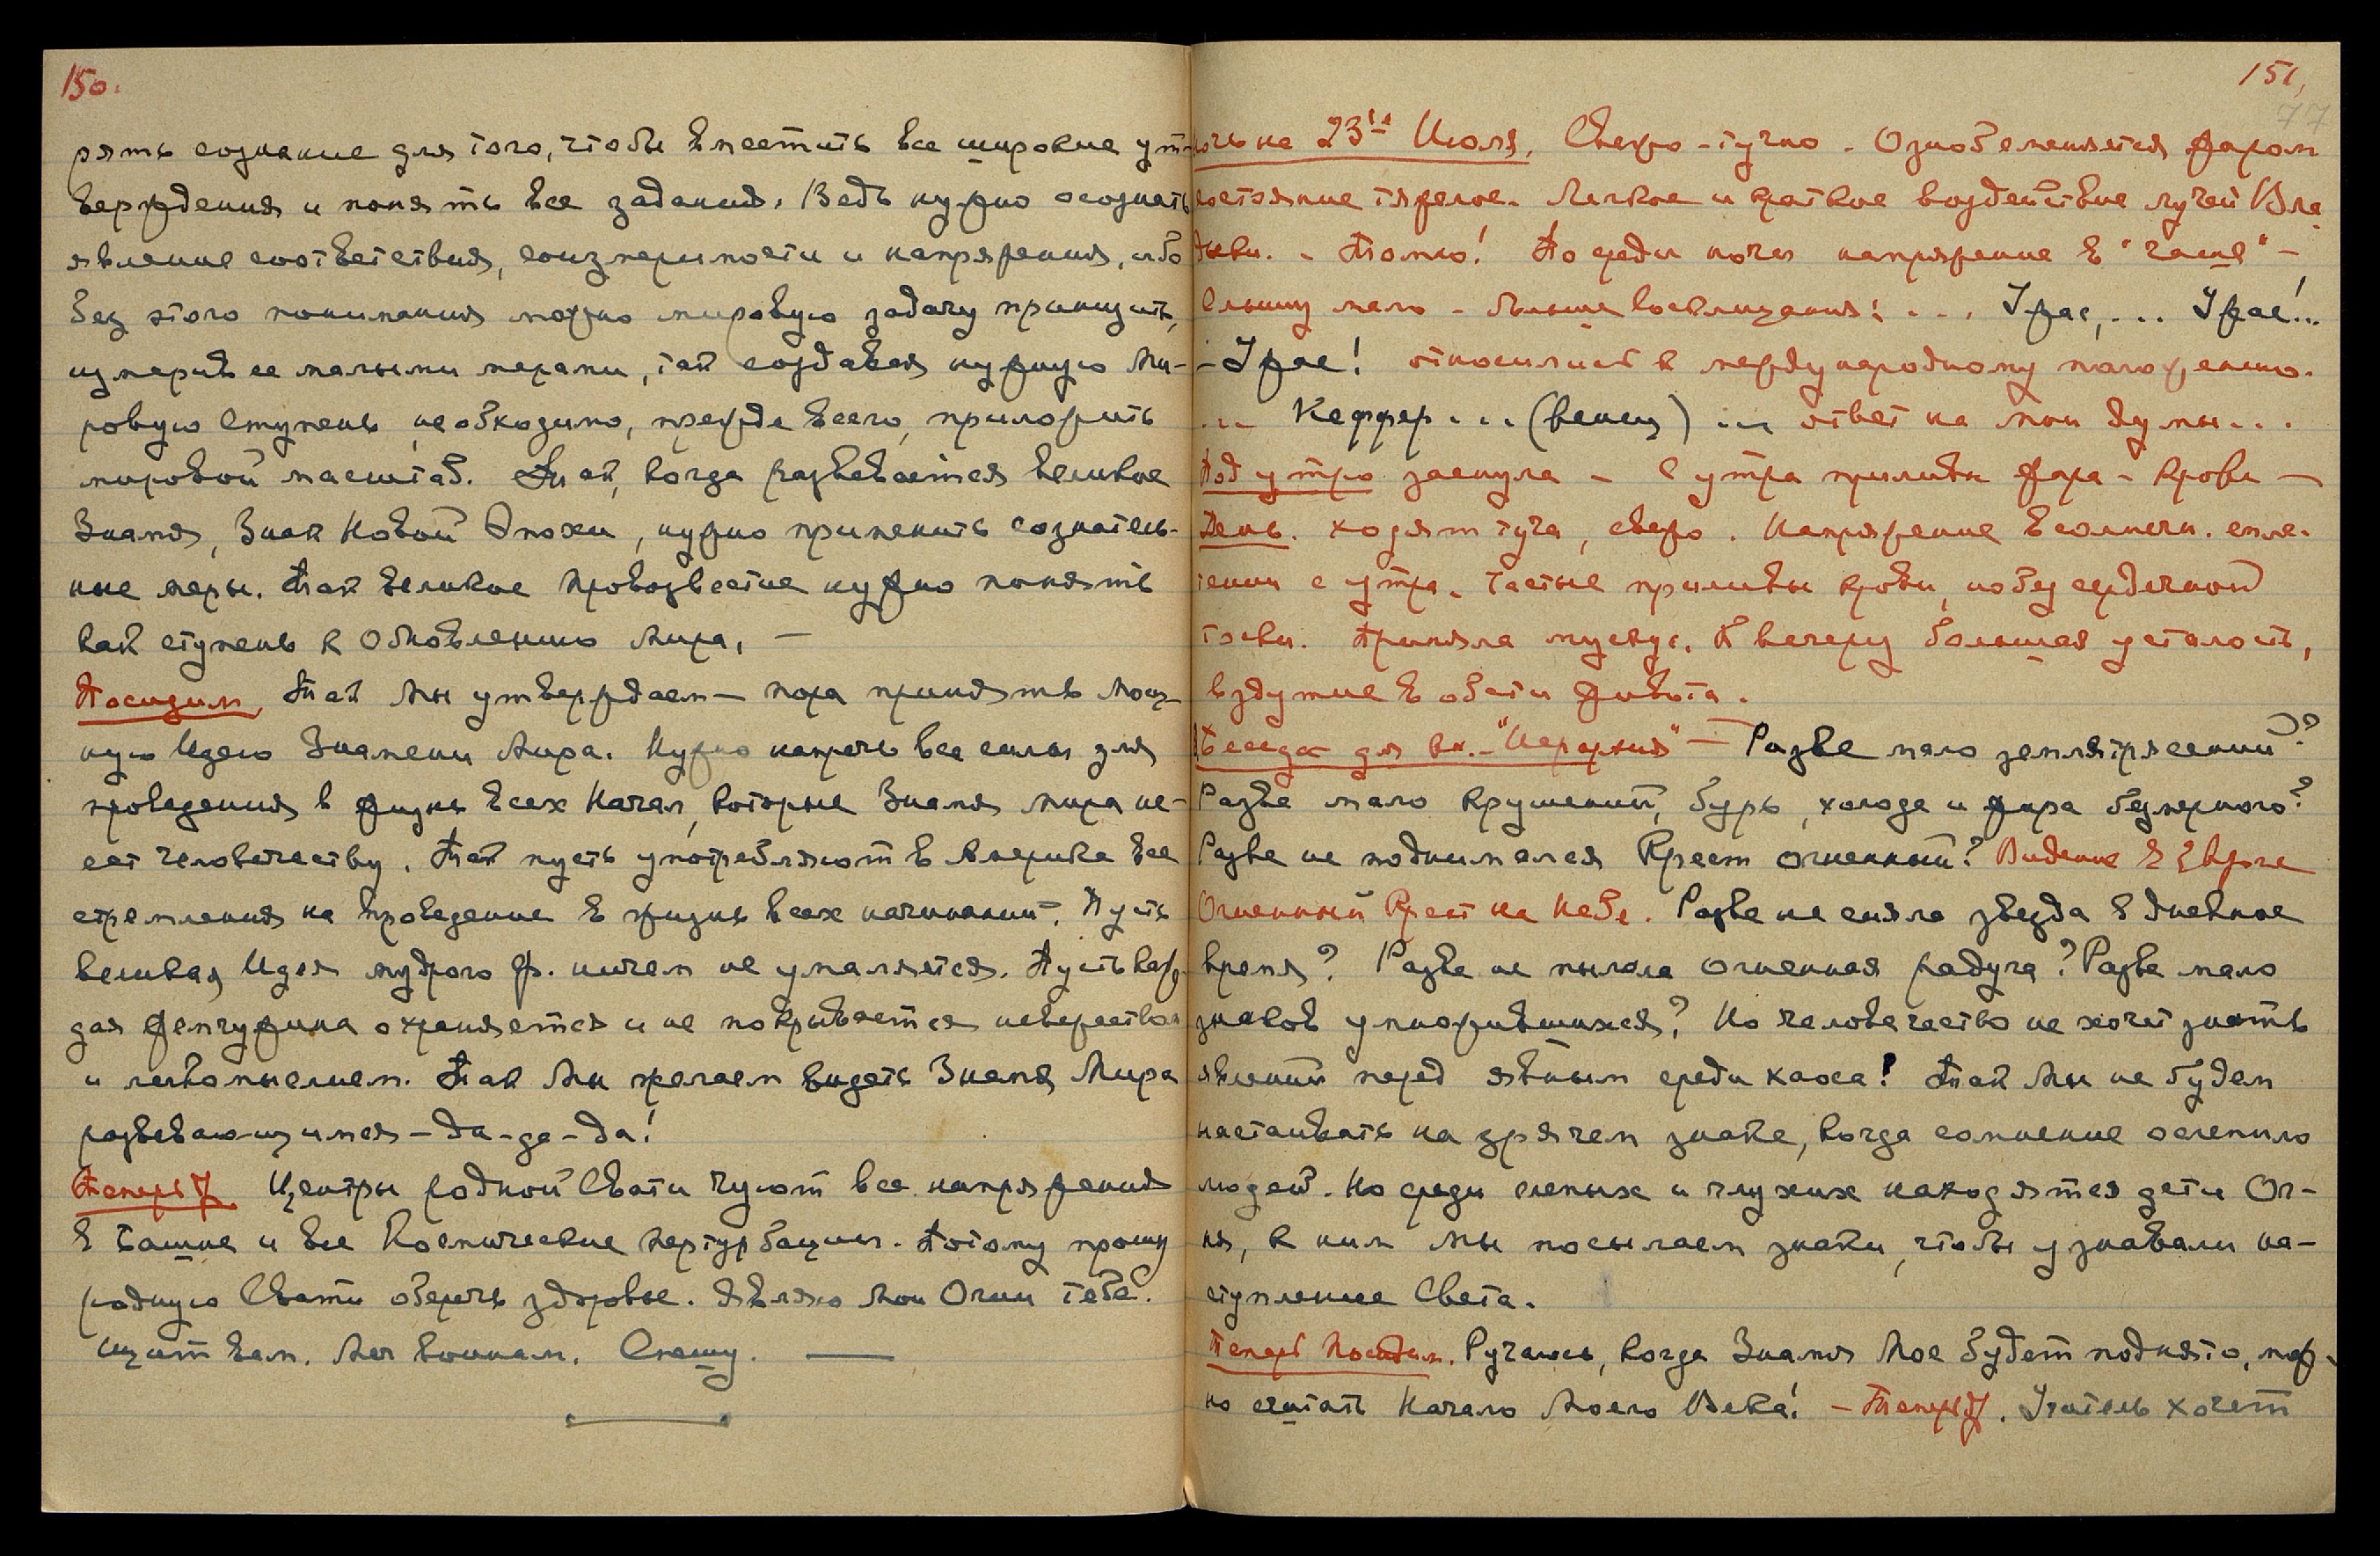 150.
рять сознание для того, чтобы вместить все широкие ут-
верждения и понять все задания. Ведь нужно осознать
явление соответствия, соизмеримости и напряжения, ибо
без этого понимания можно мировую задачу принизить,
измерив ее малыми мерами, так создавая нужную Ми-
ровую Ступень, необходимо, прежде всего, приложить
мировой масштаб. Так, когда развевается великое
Знамя, Знак Новой Эпохи, нужно применить сознатель-
ные меры. Так великое провозвестие нужно понять
как ступень к Обновлению Мира. —
Посидим. Так Мы утверждаем — пора принять Мощ-
ную Идею Знамени Мира. Нужно напречь все силы для
проведения в жизнь всех Начал, которые Знамя Мира не-
сет человечеству. Так пусть употребляют в Америке все
стремления на проведение в жизнь всех начинаний. Пусть
великая Идея мудрого Ф. ничем не умаляется. Пусть каж-
дая жемчужина охраняется и не покрывается невежеством
и легкомыслием. Так Мы желаем видеть Знамя Мира
развевающимся — да-да-да!
Теперь У. Центры родной Свати чуют все напряжения
в Башне и все Космические пертурбации. Потому прошу
родную Свати беречь здоровье. Являю Мои Огни тебе.
Щит вам. Меч воинам. Спешу. —
151,
77
Ночь на 23-ье Июля. Свежо - тучно - Озноб сменяется жаром
состояние тяжелое. Легкое и краткое воздействие лучей Вла-
дыки. - Томно! По среди ночи напряжение в "чаше" —
Слышу мало - больше восклицания: ... Ужас, ... Ужас!..
- Ужас! относились к международному положению.
... Кеффер ... (венец) ... ответ на мои думы...
Под утро заснула - с утра приливы жара - крови —
День. ходят тучи, свежо. Напряжение в солнечн. спле-
тении с утра. Частые приливы крови, но без сердечной
тоски. Приняла мускус. К вечеру большая усталость,
вздутие в области живота.
Беседа для кн. "Иерархия" — Разве мало землетрясений?
Разве мало крушений, бурь, холода и жара безмерного?
Разве не поднимался Крест огненный? Видение в Европе
Огненный Крест на Небе. Разве не сияла звезда в дневное
время? Разве не пылала огненная радуга? Разве мало
знаков умножившихся? Но человечество не хочет знать
явлений перед явным среди хаоса! Так Мы не будем
настаивать на зрячем знаке, когда сомнение ослепило
людей. Но среди слепых и глухих находятся дети Ог-
ня, к ним Мы посылаем знаки, чтобы узнавали на-
ступление Света.
Теперь Посидим. Ручаюсь, когда Знамя Мое будет поднято, мож-
но считать Начало Моего Века! — Теперь У. Учитель хочет